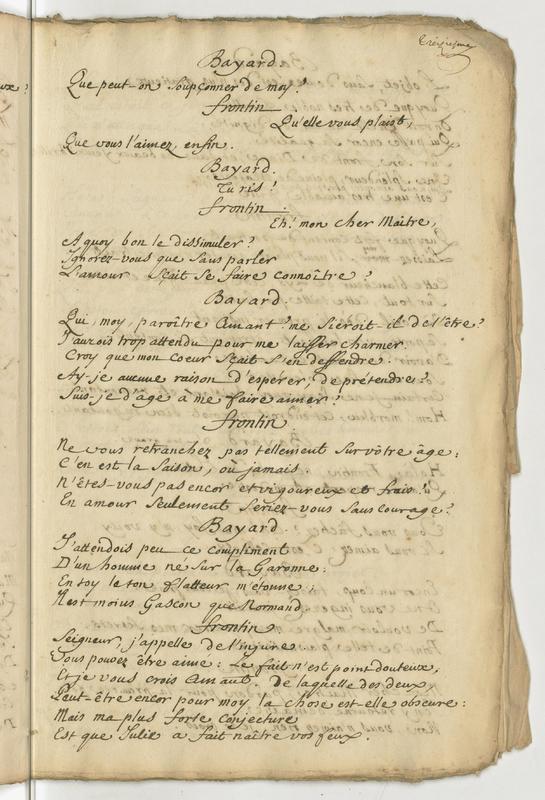 Bayard.
Que peut-on soupçonner de moy?
frontin.
Qu'elle vous plaist,
Que vous l'aimez, enfin.
Bayard.
Tu ris!
frontin.
Eh! mon cher Maitre,
A quoy bon le dissimuler?
Ignorez-vous que sans parler
L'amour sçait se faire connoître?
Bayard.
Qui, moy, paroître Amant? me sieroit-il de l'être?
J'aurois trop attendu pour me laisser charmer
Croy que mon coeur sçait s'en deffendre.
Ay-je aucune raison d'espérer, de prétendre?
Suis-je d'âge à me faire aimer?
frontin.
Ne vous retranchez pas tellement sur vôtre âge;
C'en est la saison, ou jamais.
N'êtes-vous pas encor et vigoureux et frais?
En amour seulement seriez-vous sans courage?
Bayard.
J'attendois peu ce compliment
D'un homme né sur la Garonne:
En toy le ton flatteur m'étonne;
Il est moins Gascon que Normand.
frontin
Seigneur, j'appelle de l'injure.
Vous pouvez être aimé: Le fait n'est point douteux,
Et je vous crois Amant. De laquelle des deux,
Peut-être encor pour moy, la chose est-elle obscure:
Mais ma plus forte conjecture
Est que Julie a fait naître vos feux.